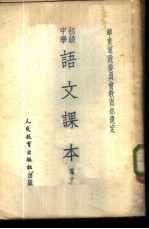 華東軍政委員會教育部選定
初級
中學
語文課本
人民教育出版社出版